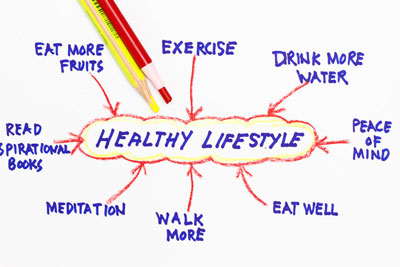 EAT MORE
FRUITS
EXERCISE
DRINK MORE
WATER
READ
SPIRATIONAL
BOOKS
HEALTHY LIFESTYLE
PEACE
OF
MIND
MEDITATION
WALK
MORE
EAT WELL